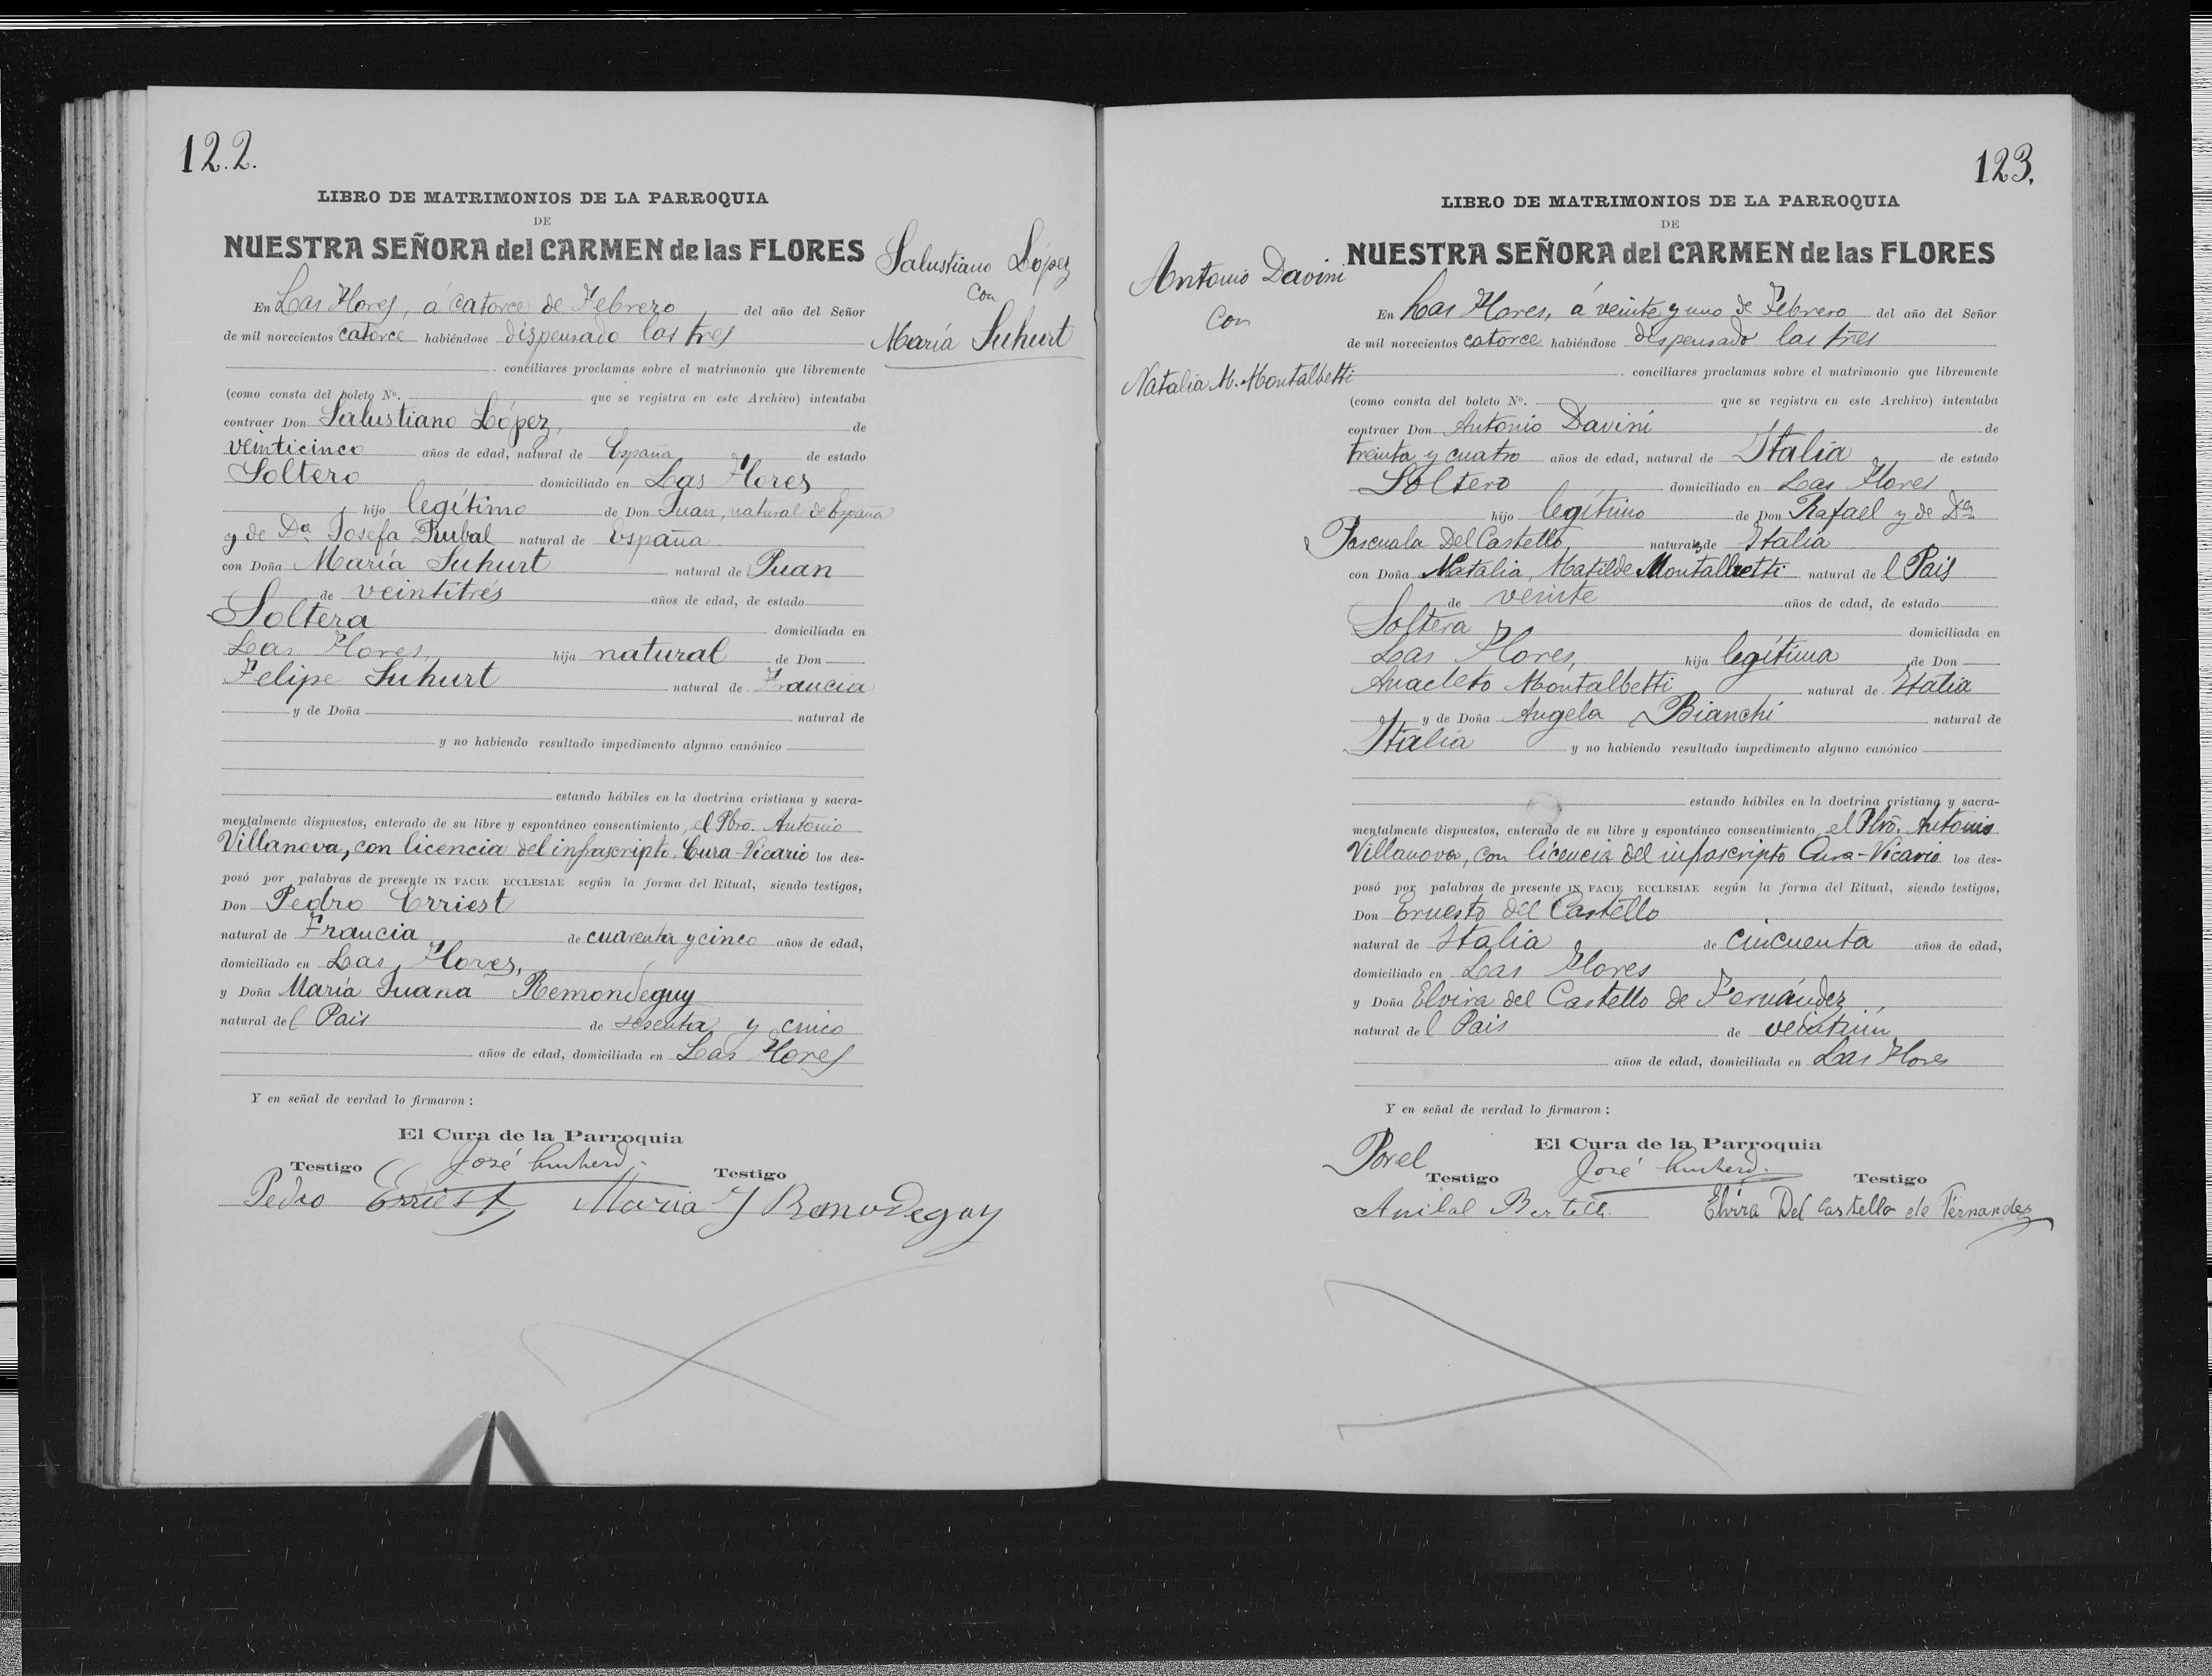 122.
LIBRO DE MATRIMONIOS DE LA PARROQUIA
DE
NUESTRA SEÑORA del CARMEN de las FLORES
Salustiano López
con
María Suhurt
En Las Flores, á catorce de Febrero del año del Señor
de mil novecientos catorce habiéndose dispensado las tres
conciliares proclamas sobre el matrimonio que libremente
(como consta del boleto Nº. que se registra en este Archivo) intentaba
contraer Don Salustiano López, de
veinticinco años de edad, natural de España de estado
Soltero domiciliado en Las Flores
hijo legítimo de Don Juan, natural de España
y de Dª Josefa Rubal natural de España
con Doña María Suhurt natural de Puan
de veintitrés años de edad, de estado
Soltera domiciliada en
Las Flores, hija natural de Don
Felipe Suhurt natural de Francia
y de Doña natural de
y no habiendo resultado impedimento alguno canónico
estando hábiles en la doctrina cristiana y sacra-
mentalmente dispuestos, enterado de su libre y espontáneo consentimiento, el Pbro. Antonio
Villanova, con licencia del infrascripto, Cura-Vicario los des-
posó por palabras de presente IN FACIE ECCLESIAE según la forma del Ritual, siendo testigos,
Don Pedro Erriest
natural de Francia de cuarenta y cinco años de edad,
domiciliado en Las Flores,
y Doña María Juana Remondeguy
natural del Pais de sesenta y cinco
años de edad, domiciliada en Las Flores
Y en señal de verdad lo firmaron:
El Cura de la Parroquia
Testigo José Testigo
Pedro Erriest María J Remondeguy
123.
LIBRO DE MATRIMONIOS DE LA PARROQUIA
DE
NUESTRA SEÑORA del CARMEN de las FLORES
Antonio Davini
con
Natalia M. Montalbetti
En Las Flores, á veinte y uno de Febrero del año del Señor
de mil novecientos catorce habiéndose dispensado las tres
conciliares proclamas sobre el matrimonio que libremente
(como consta del boleto Nº. que se registra en este Archivo) intentaba
contraer Don Antonio Davini de
treinta y cuatro años de edad, natural de Italia de estado
Soltero domiciliado en Las Flores
hijo legítimo de Don Rafael y de Dª
Pascuala Del Castello, naturales de Italia
con Doña Natalia Matilde Montalbetti natural del Pais
de veinte años de edad, de estado
Soltera domiciliada en
Las Flores, hija legítima de Don
Anacleto Montalbetti natural de Italia
y de Doña Angela Bianchi natural de
Italia y no habiendo resultado impedimento alguno canónico
estando hábiles en la doctrina cristiana y sacra-
mentalmente dispuestos, enterado de su libre y espontáneo consentimiento, el Pbro. Antonio
Villanova, con licencia del infrascripto Cura-Vicario los des-
posó por palabras de presente IN FACIE ECCLESIAE según la forma del Ritual, siendo testigos,
Don Ernesto del Castello
natural de Italia de cincuenta años de edad,
domiciliado en Las Flores
y Doña Elvira del Castello de Fernández,
natural del Pais de veintiún
años de edad, domiciliada en Las Flores
Y en señal de verdad lo firmaron:
El Cura de la Parroquia
Por el
Testigo José Testigo
Anibal Elvira Del Castello de Fernandez